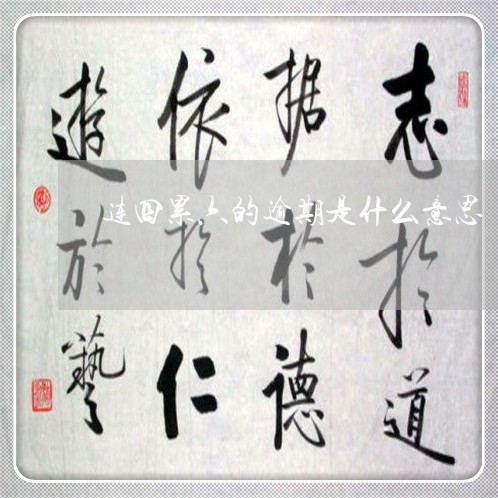 志於道
据於德
依於仁
遊於藝
连四累六的逾期是什么意思